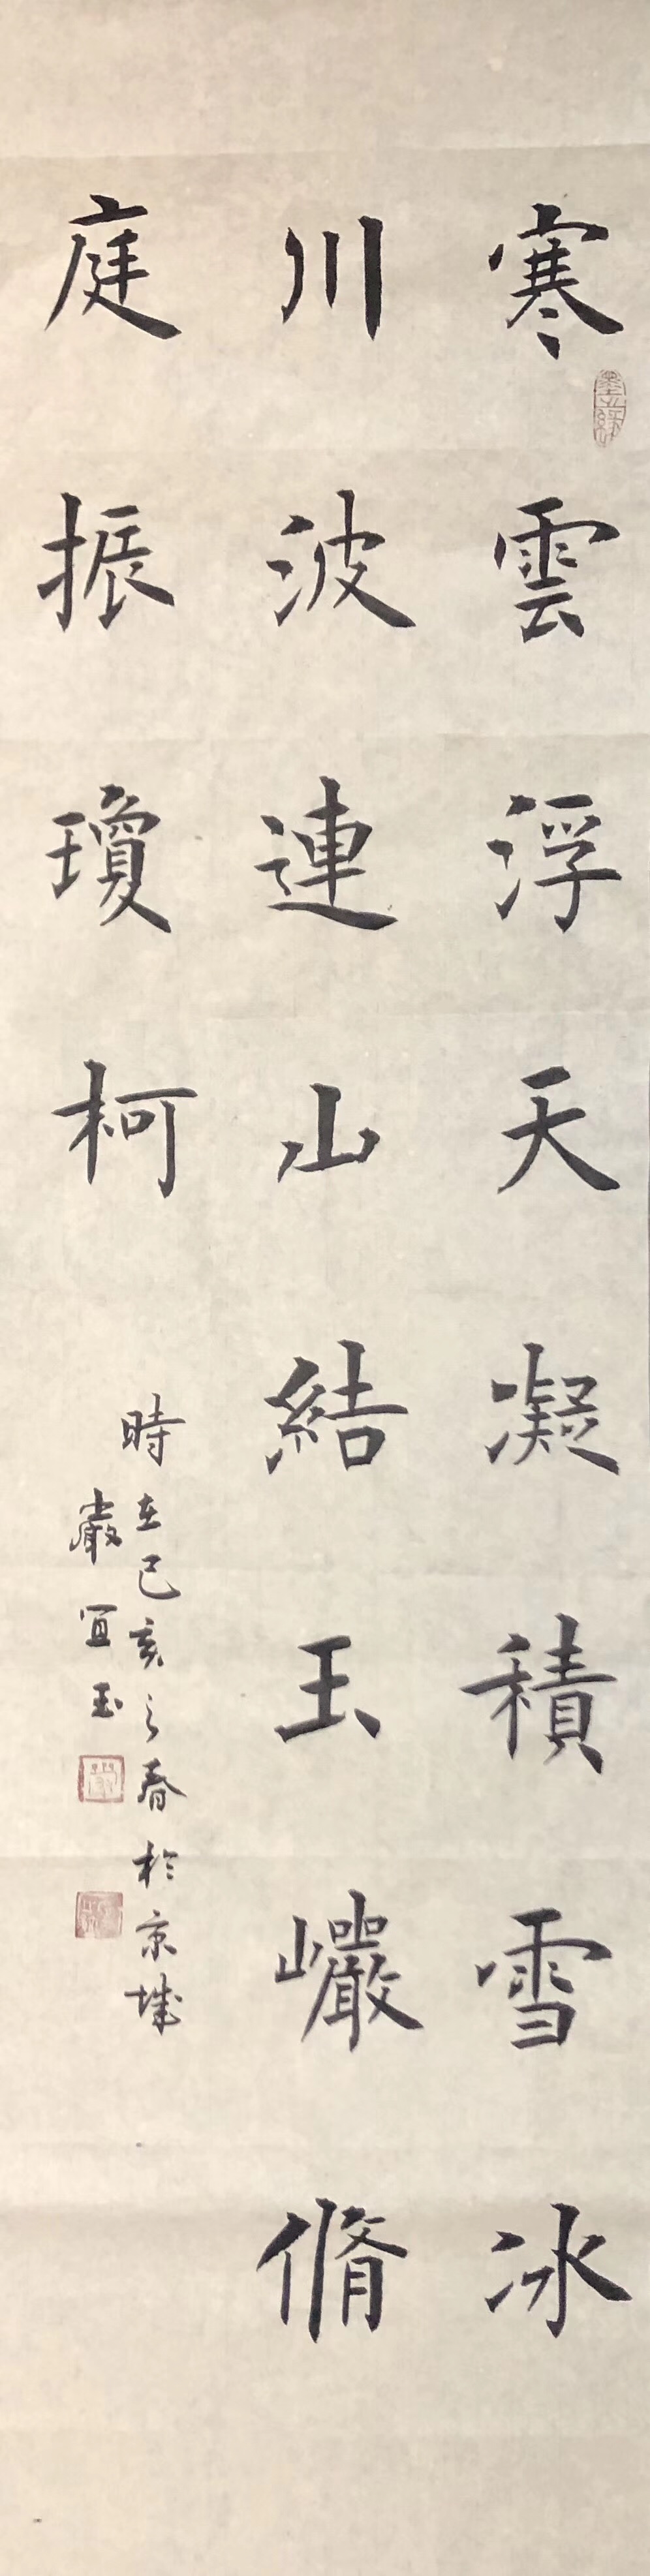 寒雲浮天凝積雪冰
川波連山結玉巗脩
庭振瓊柯
時在己亥之春於京城
嚴宜玉